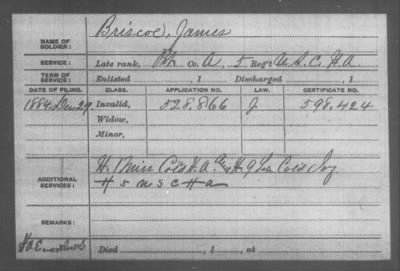 NAME OF SOLDIER: Briscoe, James
SERVICE: Late rank, Co. A, 5 Reg't U.S.C.H.A.
TERM OF SERVICE: Enlisted , 1 Discharged , 1
DATE OF FILING. CLASS. APPLICATION NO. LAW. CERTIFICATE NO.
1884 Dec 29 Invalid, 528,866 J. 598,424
Widow,
Minor,
ADDITIONAL SERVICES: H. 1 Miss Col'd H.A. H. 9 La Col'd Inf
REMARKS:
Died , 1 , at